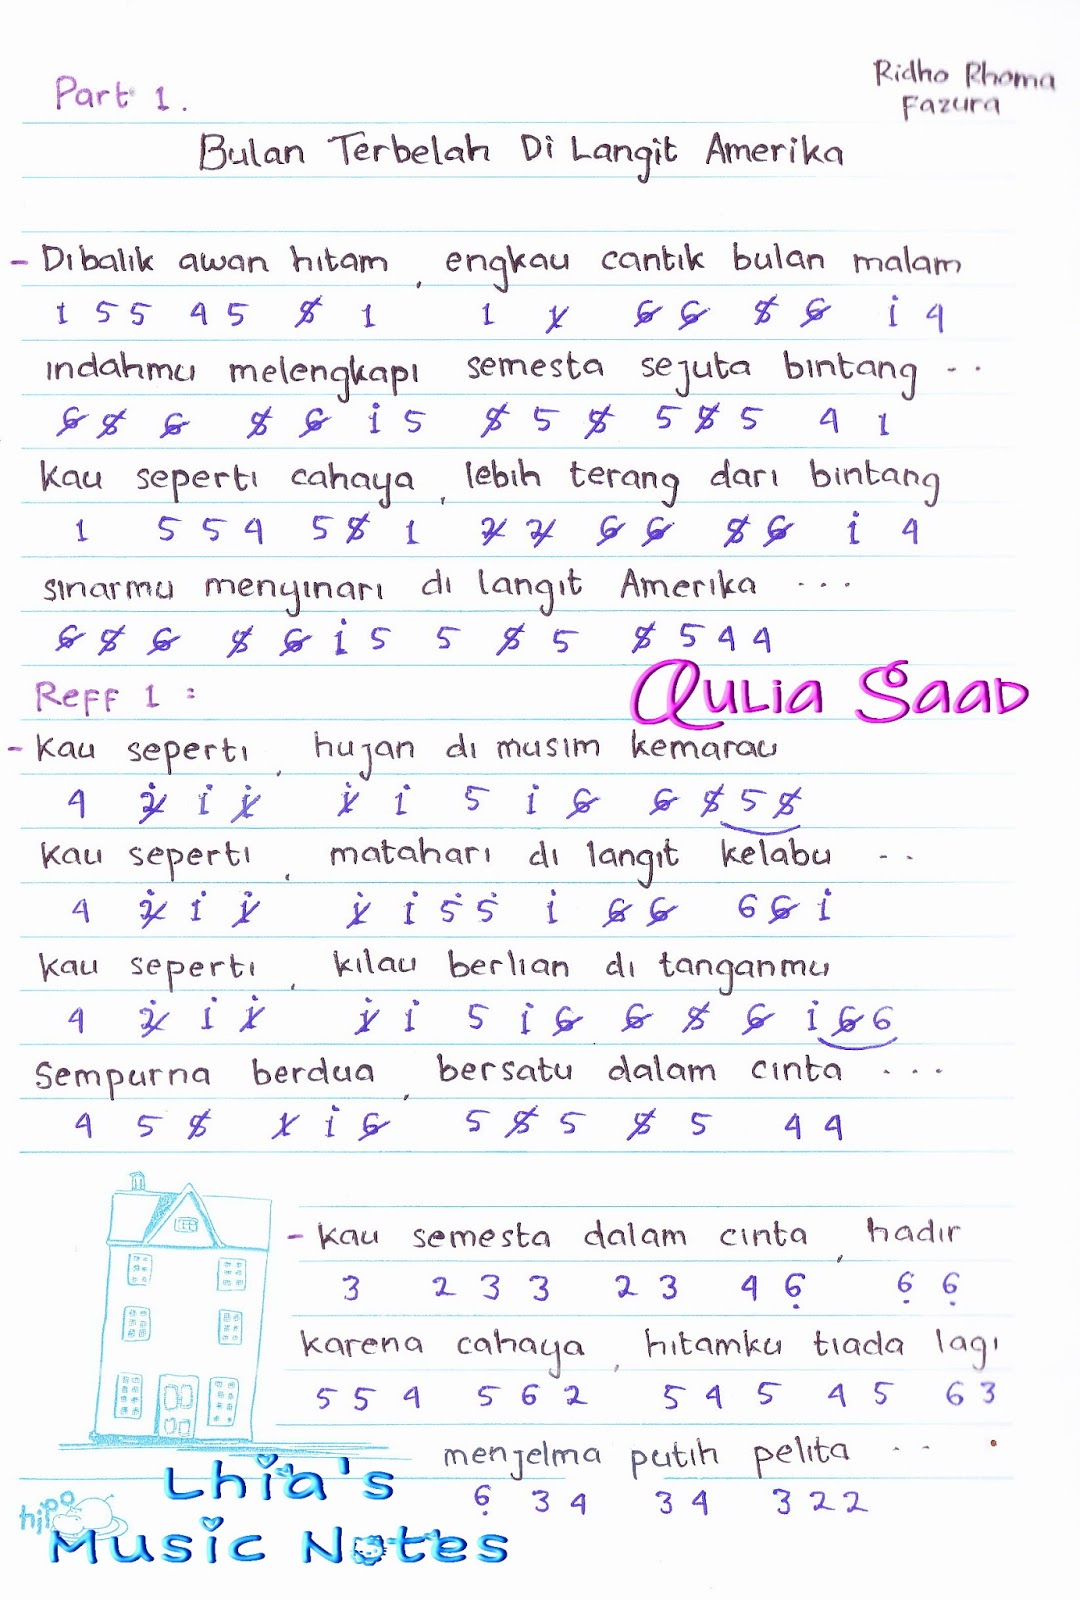 Part 1.
Ridho Rhoma
Fazura
Bulan Terbelah Di Langit Amerika
- Dibalik awan hitam, engkau cantik bulan malam
1 5 5 4 5 5̸ 1 1 1̸ 6̸ 6̸ 5̸ 6̸ i 4
indahmu melengkapi semesta sejuta bintang ..
6̸ 5̸ 6̸ 5̸ 6̸ i 5 5̸ 5 5̸ 5 5̸ 5 4 1
Kau seperti cahaya, lebih terang dari bintang
1 5 5 4 5 5̸ 1 2̸ 2̸ 6̸ 6̸ 5̸ 6̸ i 4
sinarmu menyinari di langit Amerika ...
6̸ 5̸ 6̸ 5̸ 6̸ i 5 5 5̸ 5 5̸ 5 4 4
Reff 1 :
Qulia Saad
- Kau seperti, hujan di musim kemarau
4 2̸̇ i 1̸̇ 1̸̇ i 5 i 6̸ 6̸ 5̸ 5 5̸
Kau seperti, matahari di langit kelabu ..
4 2̸̇ i 1̸̇ 1̸̇ i 5̇ 5̇ i 6̸ 6̸ 6 6̸ i
Kau seperti, kilau berlian di tanganmu
4 2̸̇ i 1̸̇ 1̸̇ i 5 i 6̸ 6̸ 5̸ 6̸ i 6̸ 6
Sempurna berdua, bersatu dalam cinta ...
4 5 5̸ 1̸ i 6̸ 5 5̸ 5 5̸ 5 4 4
- Kau semesta dalam cinta, hadir
3 2 3 3 2 3 4 6̣ 6̣ 6̣
karena cahaya, hitamku tiada lagi
5 5 4 5 6 2 5 4 5 4 5 6 3
menjelma putih pelita ..
6̣ 3 4 3 4 3 2 2
Lhia's
hipo
Music Notes